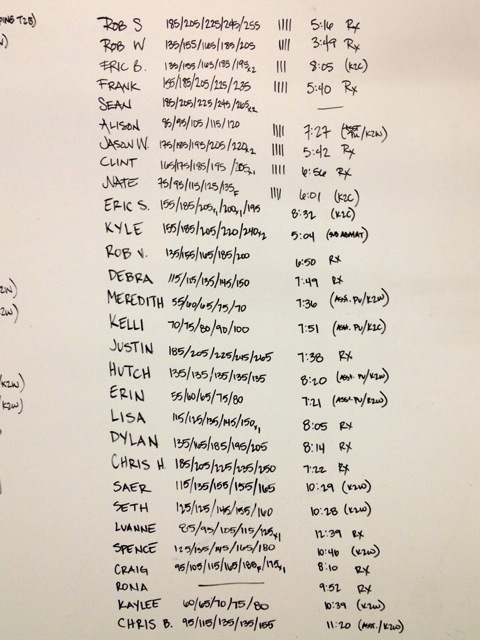 PING T2B)
ROB S 185/205/225/245/255 |||| 5:16 Rx
ROB W 135/155/165/185/205 |||| 3:49 Rx
ERIC B. 135/155/165/185/195x2 ||| 8:05 (K2C)
FRANK 155/185/205/225/235 |||| 5:40 Rx
SEAN 185/205/225/245/265x2 —
ALISON 85/95/105/115/120 |||| 7:27 (ASST. PU/K2W)
JASON W. 175/185/195/205/220x2 |||| 5:42 Rx
CLINT 165/175/185/195/205x1 |||| 6:56 Rx
NATE 75/95/115/125/135F |||| 6:01 (K2C)
ERIC S. 155/185/205x1/200x1/195 8:32 (K2C)
KYLE 155/185/205/220/240x2 5:04 (SUB ABMAT)
ROB V. 135/155/165/185/200 6:50 Rx
DEBRA 115/115/135/145/150 7:49 Rx
2W)
MEREDITH 55/60/65/75/70 7:36 (ASST. PU/K2W)
2W)
KELLI 70/75/80/90/100 7:51 (ASST. PU/K2C)
JUSTIN 185/205/225/245/265 7:38 Rx
HUTCH 135/135/135/135/135 8:20 (ASST. PU/K2W)
K2W)
ERIN 55/60/65/75/80 7:21 (ASST. PU/K2W)
K2W)
LISA 115/125/135/145/150x1 8:05 Rx
DYLAN 135/165/185/195/205 8:14 Rx
CHRIS H. 185/205/225/235/250 7:22 Rx
SAER 115/135/155/155/165 10:29 (K2W)
SETH 125/125/145/155/160 10:28 (K2W)
LUANNE 85/95/105/115/125x1 12:39 Rx
SPENCE 125/135/145/165/180 10:46 (K2W)
CRAIG 95/105/115/165/180F/175x1 8:10 Rx
RONA — 9:52 Rx
KAYLEE 60/65/70/75/80 10:39 (K2W)
CHRIS B. 95/115/135/135/155 11:20 (ASST./K2W)